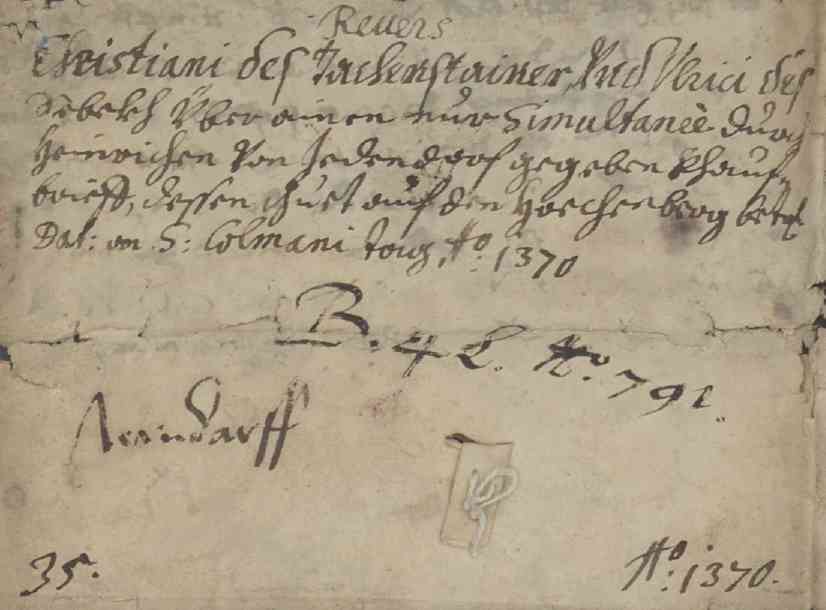 Revers
Christiani des Jachenstainer, Vnd Vlrici des
Sebekh Über ainen nur Simultaneè durch
Heinrichen Von Jedendorf gegeben Khauf-
brieff, dessen guet auf den Hochenberg betr:
Dat: an S: Colmani tag, Aõ: 1370
B. 4 L. No. 791.
35.
Aõ: 1370.